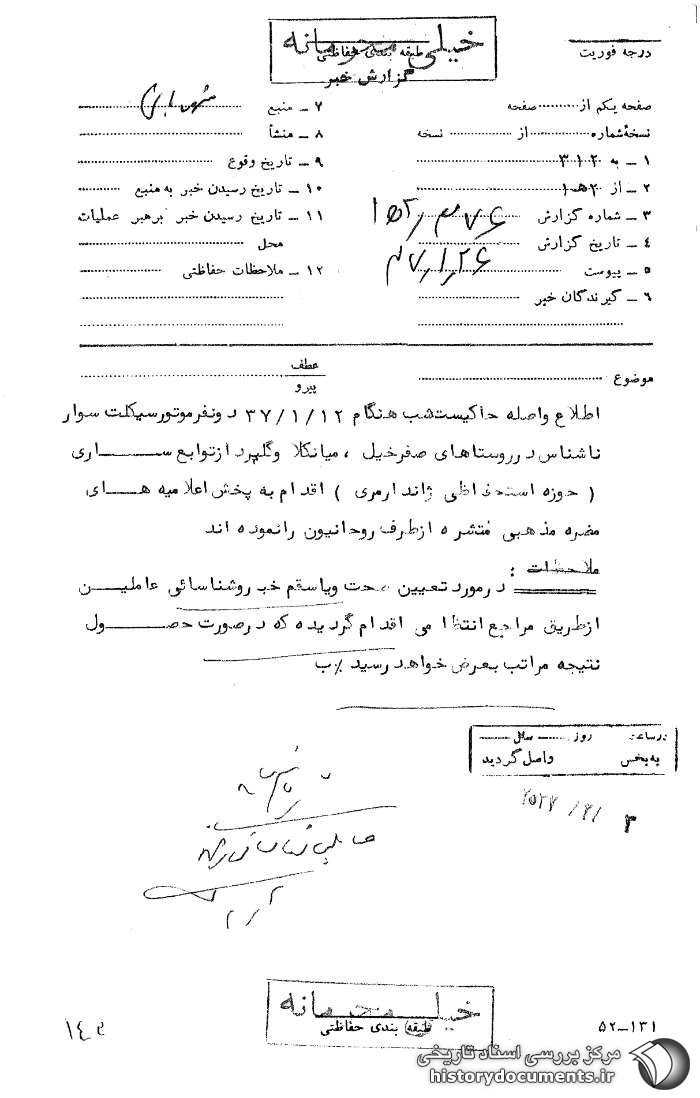 خیلی محرمانه
طبقه بندی حفاظتی
گزارش خبر
درجه فوریت
صفحه یکم از صفحه
نسخه شماره از نسخه
۱ ـ به ۳۱۲
۲ ـ از
۳ ـ شماره گزارش
۴ ـ تاریخ گزارش
۵ ـ پیوست
۶ ـ گیرندگان خبر
۷ ـ منبع
۸ ـ منشأ
۹ ـ تاریخ وقوع
۱۰ ـ تاریخ رسیدن خبر به منبع
۱۱ ـ تاریخ رسیدن خبر برهبر عملیات
محل
۱۲ ـ ملاحظات حفاظتی
عطف
پیرو
موضوع
اطلاع واصله حاکیست شب هنگام ۳۷/۱/۱۲ دونفر موتورسیکلت سوار
ناشناس در روستاهای صفرخیل ، میانکلا وگلپرد ازتوابع ساری
( حوزه استحفاظی ژاندارمری ) اقدام به پخش اعلامیه های
مضره مذهبی منتشره ازطرف روحانیون رانموده اند
ملاحظات :
درمورد تعیین صحت ویاسقم خبر وشناسائی عاملین
ازطریق مراجع انتظامی اقدام گردیده که درصورت حصول
نتیجه مراتب بعرض خواهد رسید ٪ب
درساعت روز سال
به بخش واصل گردید
۳
خیلی محرمانه
طبقه بندی حفاظتی
۵۲-۱۳۱
مرکز بررسی اسناد تاریخی
historydocuments.ir